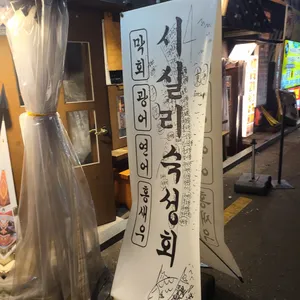 시실리숙성회
막회
광어
연어
홍새우